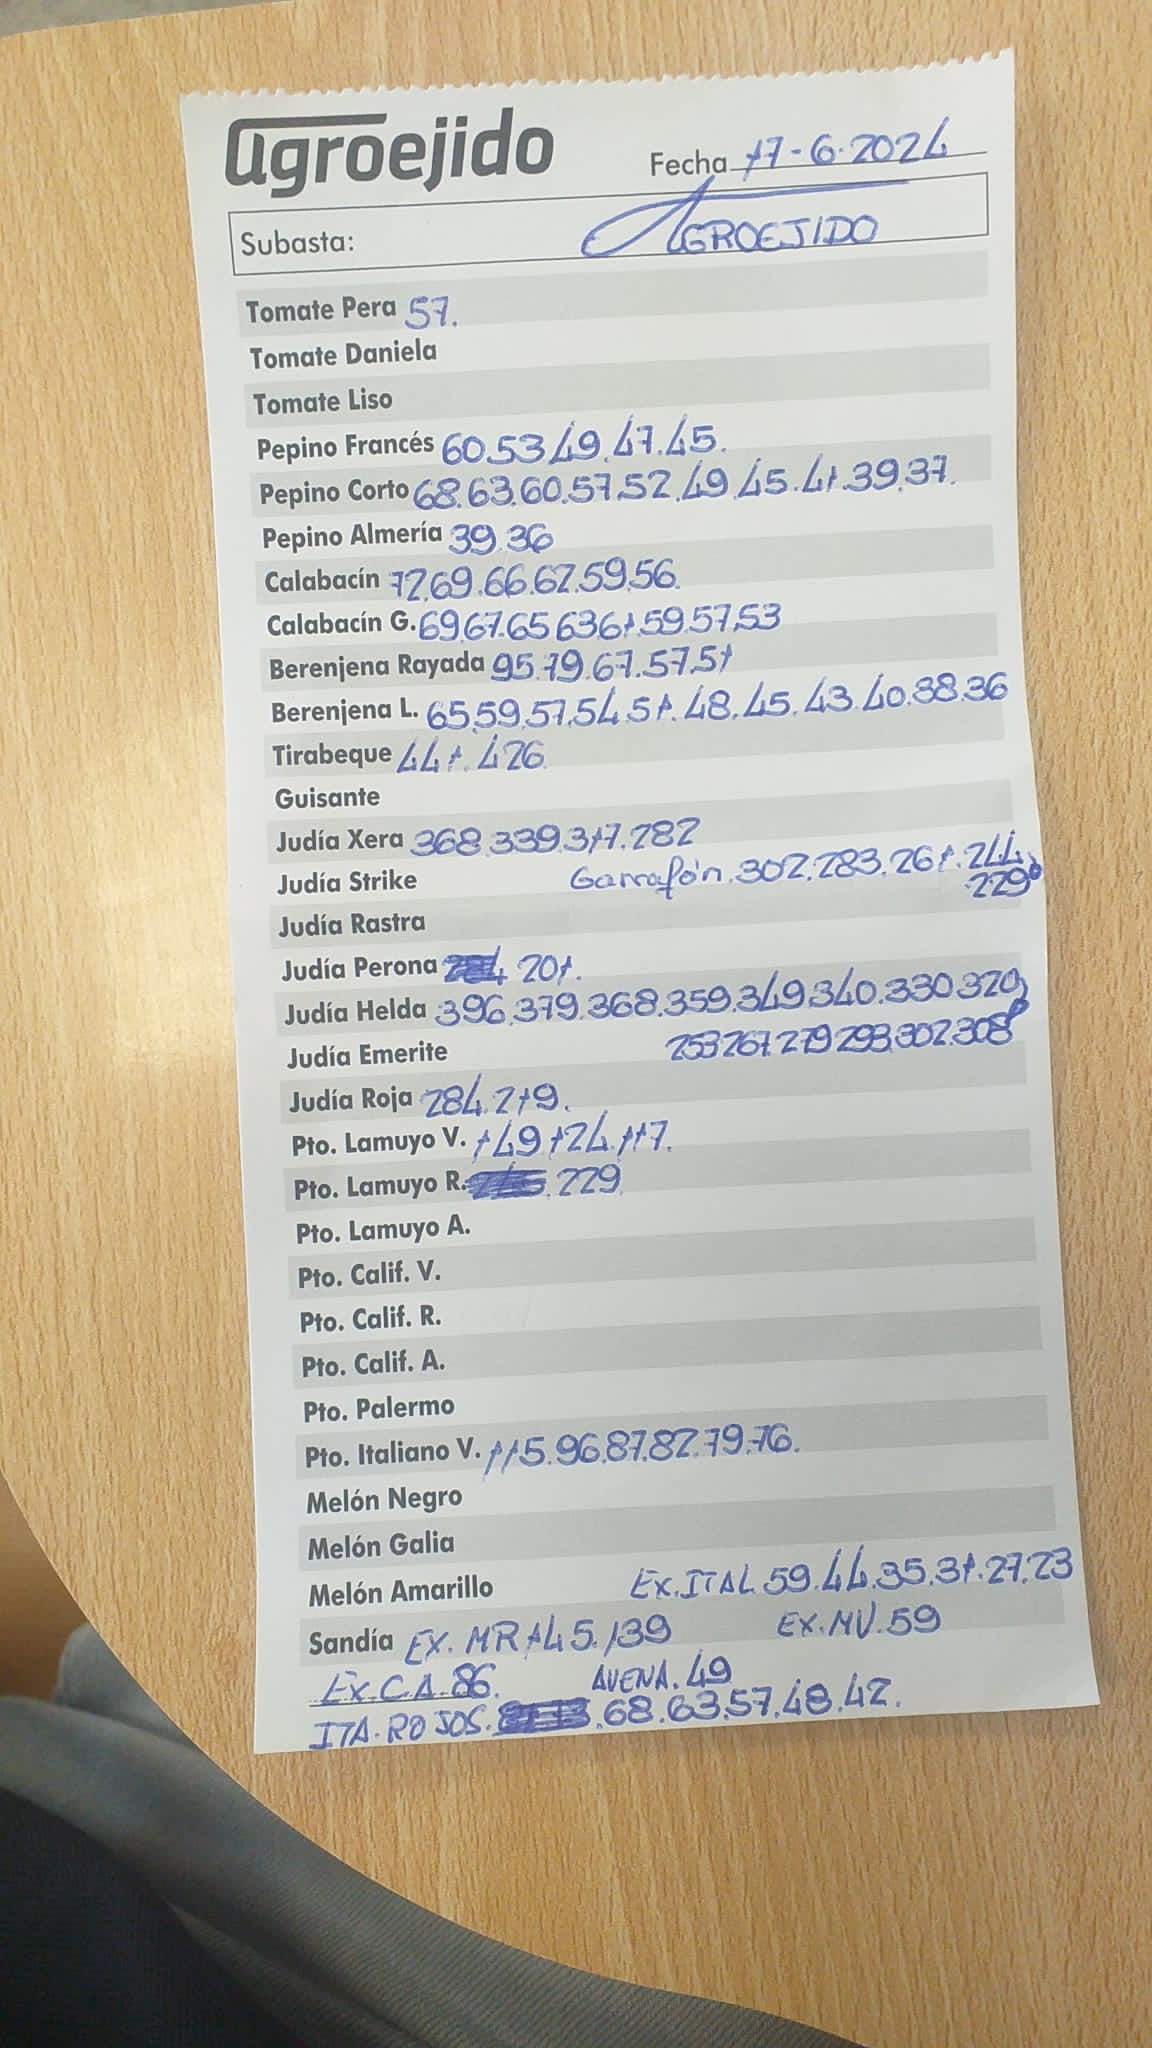 agroejido
Fecha 17-6-2024
Subasta: AGROEJIDO
Tomate Pera 57.
Tomate Daniela
Tomate Liso
Pepino Francés 60.53.49.47.45.
Pepino Corto 68.63.60.57.52.49.45.41.39.37.
Pepino Almería 39.36
Calabacín 72.69.66.62.59.56.
Calabacín G. 69.67.65.63.61.59.57.53
Berenjena Rayada 95.79.67.57.51
Berenjena L. 65.59.57.54.51.48.45.43.40.38.36
Tirabeque 441.426
Guisante
Judía Xera 368.339.317.282
Judía Strike Garrafón.302.283.261.244.
229
Judía Rastra
Judía Perona 201.
Judía Helda 396.379.368.359.349.340.330.320
Judía Emerite 253 267 279 293.302.308
Judía Roja 284.219.
Pto. Lamuyo V. 149.124.117.
Pto. Lamuyo R. 229
Pto. Lamuyo A.
Pto. Calif. V.
Pto. Calif. R.
Pto. Calif. A.
Pto. Palermo
Pto. Italiano V. 115.96.87.82.79.76.
Melón Negro
Melón Galia
Melón Amarillo EX.ITAL 59.44.35.31.27.23
Sandía EX. MR 145.139 EX.MV.59
EX.C.A.86. AVENA.49
ITA.ROJOS. .68.63.57.48.42.